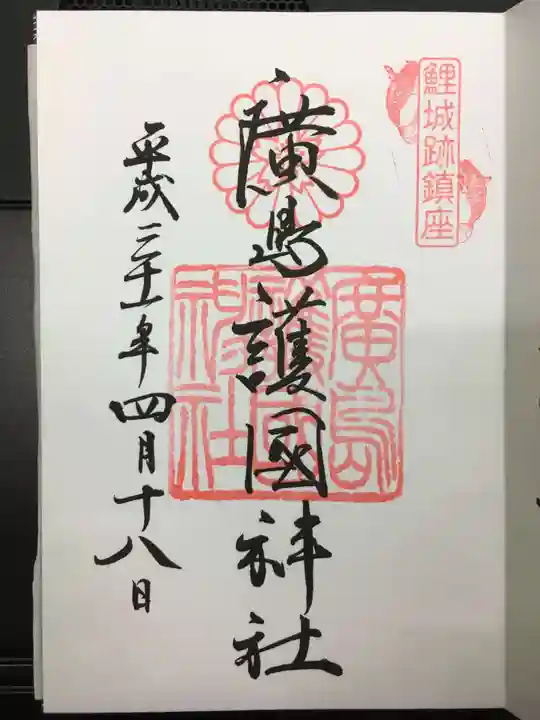 鯉城跡鎮座
廣島護國神社
廣島
護國
神社
平成三十一年四月十八日